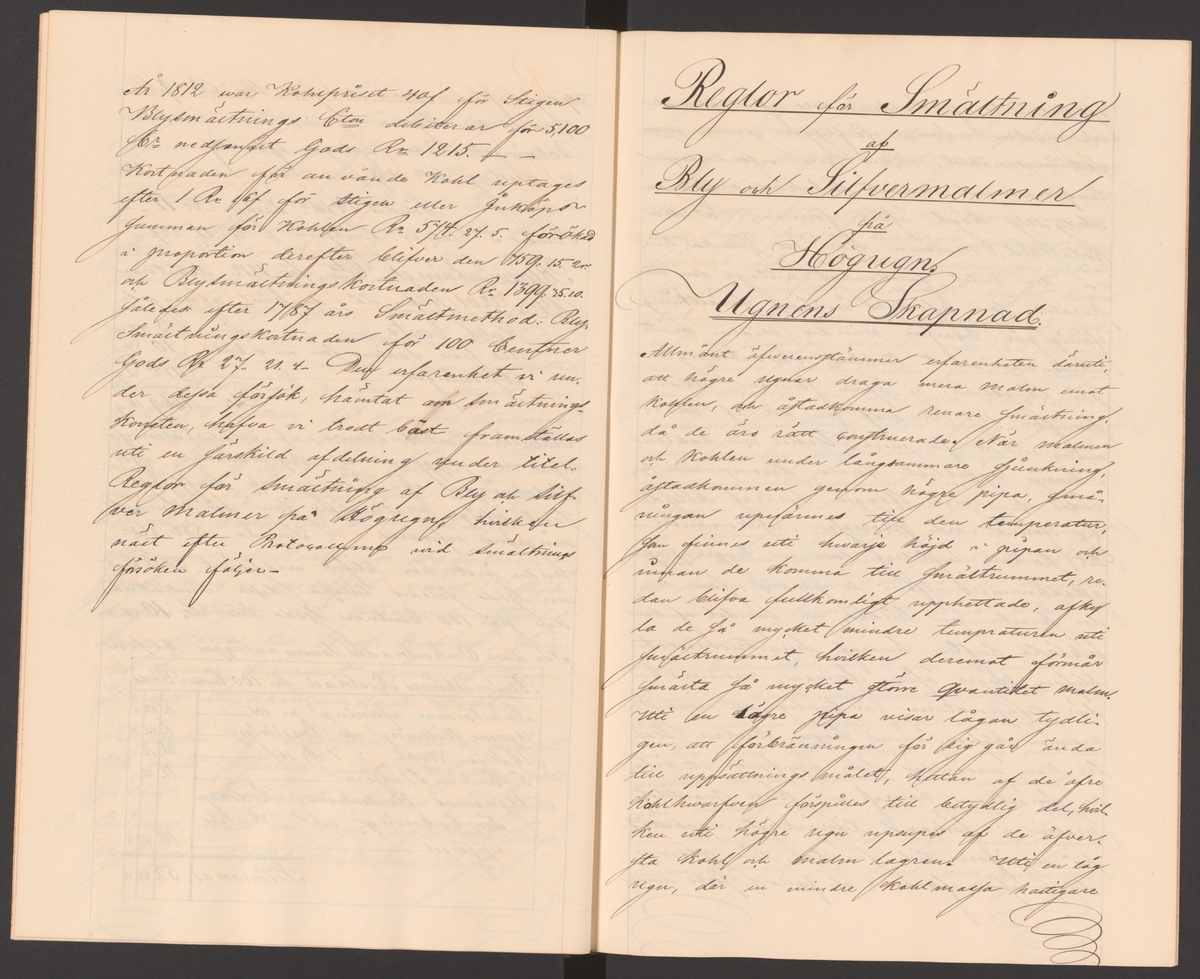 År 1812 war Kohlpriset 40f för Stigen
Blysmältnings Cton debiterar för 5,100
Cr nedsmält Gods Rr 1215. — —
Kostnaden för använde Kohl uptages
efter 1 Rr för Stigen eller
summan för Kohlen Rr 574. 27. 5. förökad
i proportion derefter blifver den 759. 15. 20
och Blysmältningskostnaden Rr 1399. 35. 10.
således efter 1787 års Smältmethod: Bly-
Smältningskostnaden för 100 Centner
Gods Rr 27. 21. 4 — Den erfarenhet vi un-
der dessa försök, hämtat om smältnings-
konsten, hafva vi trodt bäst framställas
uti en särskild afdelning under titel.
Reglor för smältning af Bly och Silf-
ver Malmer på Högugn, hvilken
näst efter Protocollerne vid smältnings
försöken följer —
Reglor för Smältning
af
Bly och Silfvermalmer
på
Högugn.
Ugnens Skapnad.
Allmänt äfverensstämmer erfarenheten däruti,
att högre ugnar draga mera malm emot
kohlen, och åstadkomma renare smältning,
då de äro rätt construerade. När malmen
och Kohlen under långsammare sjunkning,
åstadkommen genom högre pipa, små-
ningan upvärmes till den temperatur,
som finnes uti hwarje höjd i pipan och
innan de komma till smältrummet, re-
dan blifva fullkomligt upphettade, afky-
la de så mycket mindre tempraturen uti
smältrummet, hvilken deremot förmår
smälta så mycket större qvantitet malm.
Uti en lägre pipa visar lågan tydli-
gen, att förbränningen för sig går ända
till uppsättnings målet, hettan af de öfre
Kohlhwarfven förspilles till betydlig del, hvil-
ken uti högre ugn upsupes af de äfver-
sta Kohl och malm lagren. Uti en låg
ugn, där en mindre Kohlmassa hastigare